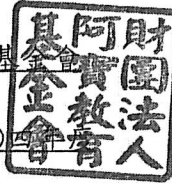 財團法人
阿寶教育
基金會
基金會